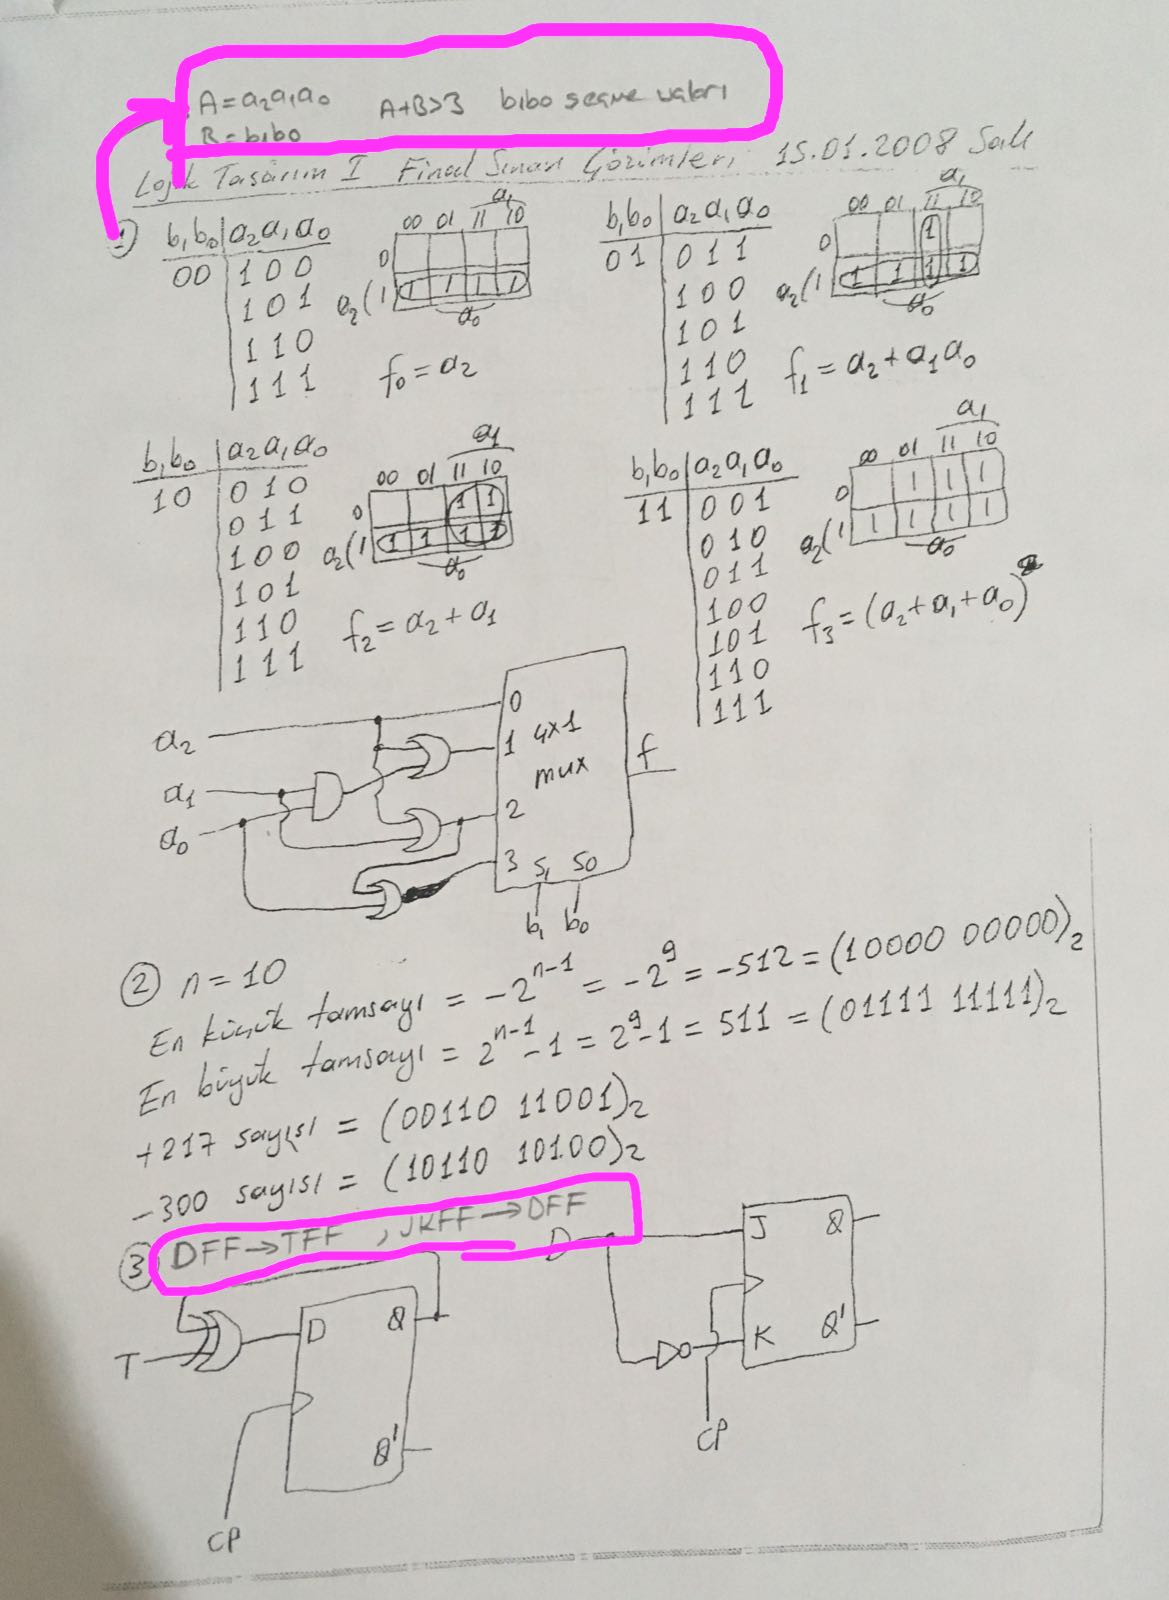 A=a₂a₁a₀ A+B>3 b₁b₀ seçme uçları
B=b₁b₀
Lojik Tasarım I Final Sınav Çözümleri, 15.01.2008 Salı
1
b₁b₀ a₂a₁a₀
00 100
101
110
111
a₁
00 01 11 10
0
a₂(1 1 1 1 1
a₀
f₀=a₂
b₁b₀ a₂a₁a₀
01 011
100
101
110
111
a₁
00 01 11 10
0 1
a₂(1 1 1 1 1
a₀
f₁=a₂+a₁a₀
b₁b₀ a₂a₁a₀
10 010
011
100
101
110
111
a₁
00 01 11 10
0 1 1
a₂(1 1 1 1 1
a₀
f₂=a₂+a₁
b₁b₀ a₂a₁a₀
11 001
010
011
100
101
110
111
a₁
00 01 11 10
0 1 1 1
a₂(1 1 1 1 1
a₀
f₃=(a₂+a₁+a₀)
a₂
a₁
a₀
0
1
2
3
4x1
mux
f
S₁ S₀
b₁ b₀
2 n=10
En küçük tamsayı = -2ⁿ⁻¹ = -2⁹ = -512 = (10000 00000)₂
En büyük tamsayı = 2ⁿ⁻¹-1 = 2⁹-1 = 511 = (01111 11111)₂
+217 sayısı = (00110 11001)₂
-300 sayısı = (10110 10100)₂
3 DFF→TFF , JKFF→DFF
T
D Q
Q'
CP
D
J Q
K Q'
CP